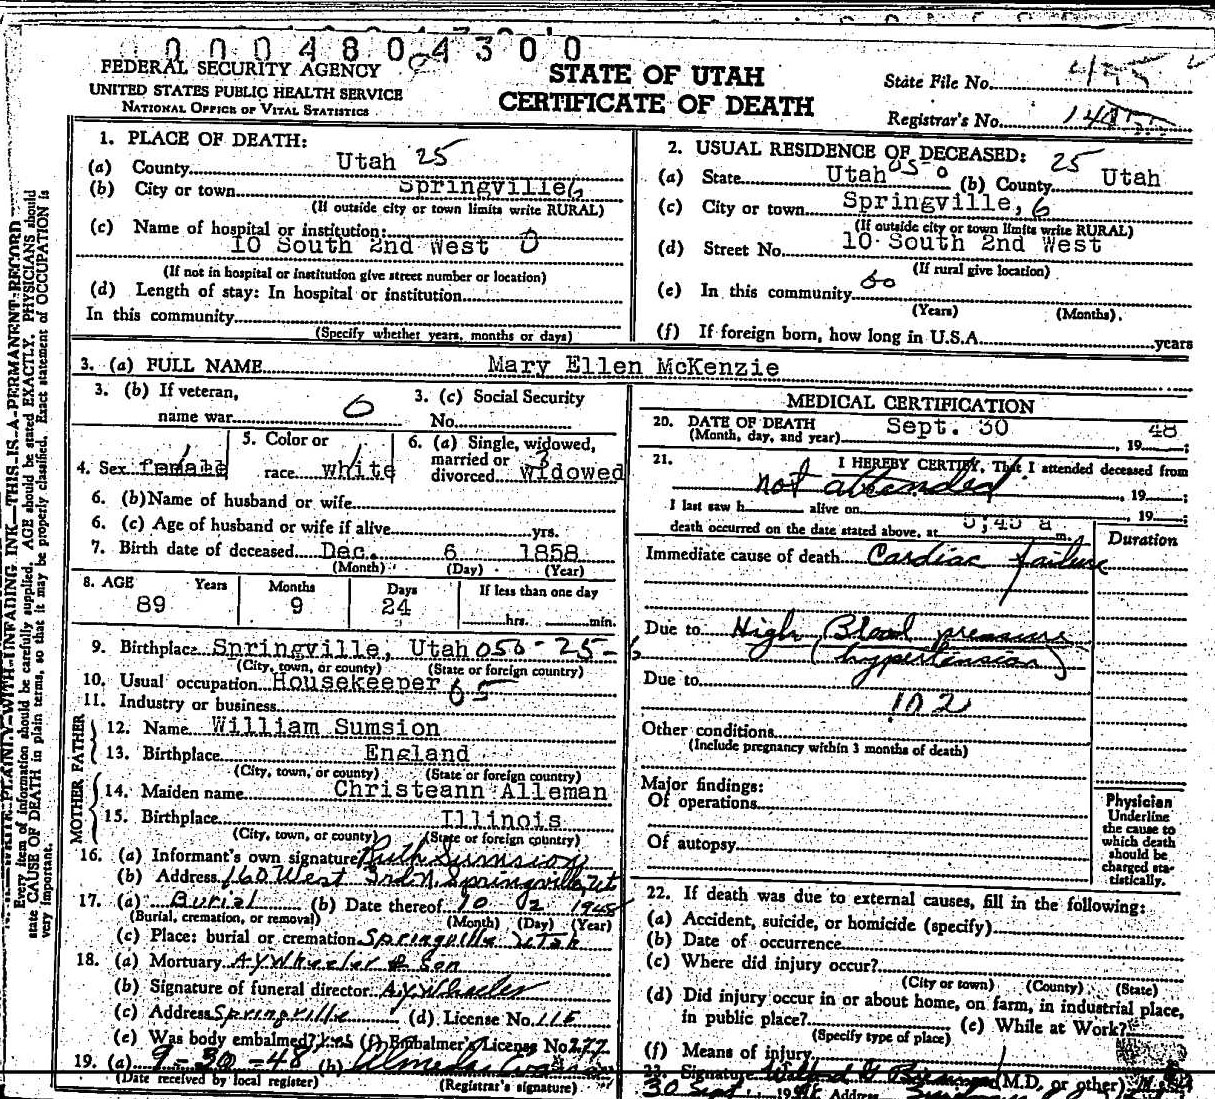 0 0 0 4 8 0 4 3 0 0
FEDERAL SECURITY AGENCY
UNITED STATES PUBLIC HEALTH SERVICE
NATIONAL OFFICE OF VITAL STATISTICS
STATE OF UTAH
CERTIFICATE OF DEATH
State File No.
Registrar's No.
WRITE PLAINLY WITH UNFADING INK—THIS IS A PERMANENT RECORD
Every item of information should be carefully supplied. AGE should be stated EXACTLY. PHYSICIANS should
state CAUSE OF DEATH in plain terms, so that it may be properly classified. Exact statement of OCCUPATION is
very important.
1. PLACE OF DEATH:
(a) County Utah 25
(b) City or town Springville 6
(If outside city or town limits write RURAL)
(c) Name of hospital or institution:
10 South 2nd West 0
(If not in hospital or institution give street number or location)
(d) Length of stay: In hospital or institution
In this community
(Specify whether years, months or days)
2. USUAL RESIDENCE OF DECEASED:
(a) State Utah 050 (b) County 25 Utah
(c) City or town Springville, 6
(If outside city or town limits write RURAL)
(d) Street No. 10 South 2nd West
(If rural give location)
(e) In this community 60
(Years) (Months)
(f) If foreign born, how long in U.S.A. years
3. (a) FULL NAME Mary Ellen McKenzie
3. (b) If veteran,
name war 0
3. (c) Social Security
No.
4. Sex female
5. Color or
race white
6. (a) Single, widowed,
married or 3
divorced widowed
6. (b) Name of husband or wife
6. (c) Age of husband or wife if alive yrs.
7. Birth date of deceased Dec. 6 1858
(Month) (Day) (Year)
8. AGE Years Months Days If less than one day
89 9 24 hrs. min.
9. Birthplace Springville, Utah 050-25-6
(City, town, or county) (State or foreign country)
10. Usual occupation Housekeeper 65
11. Industry or business
FATHER
12. Name William Sumsion
13. Birthplace England
(City, town, or county) (State or foreign country)
MOTHER
14. Maiden name Christeann Alleman
15. Birthplace Illinois
(City, town, or county) (State or foreign country)
16. (a) Informant's own signature Ruth Sumsion
(b) Address 160 West 3rd N. Springville, Ut
17. (a) Burial (b) Date thereof 10 02 1948
(Burial, cremation, or removal) (Month) (Day) (Year)
(c) Place: burial or cremation Springville Utah
18. (a) Mortuary A Y Wheeler & Son
(b) Signature of funeral director A.Y. Wheeler
(c) Address Springville (d) License No. 115
(e) Was body embalmed? yes (f) Embalmer's License No. 277
19. (a) 9-30-48 (b) Almeda
(Date received by local register) (Registrar's signature)
MEDICAL CERTIFICATION
20. DATE OF DEATH
(Month, day, and year) Sept. 30 1948;
21. I HEREBY CERTIFY, That I attended deceased from
not attended , 19 ;
I last saw h alive on , 19 ;
death occurred on the date stated above, at 5;45 a m.
Duration
Immediate cause of death Cardiac failure
Due to High Blood pressure
(hypertension)
Due to
102
Other conditions
(Include pregnancy within 3 months of death)
Major findings:
Of operations
Of autopsy
Physician
Underline
the cause to
which death
should be
charged sta-
tistically.
22. If death was due to external causes, fill in the following:
(a) Accident, suicide, or homicide (specify)
(b) Date of occurrence
(c) Where did injury occur?
(City or town) (County) (State)
(d) Did injury occur in or about home, on farm, in industrial place,
in public place? (e) While at Work?
(Specify type of place)
(f) Means of injury
23. Signature (M.D. or other)
30 Sept. 1948 Address